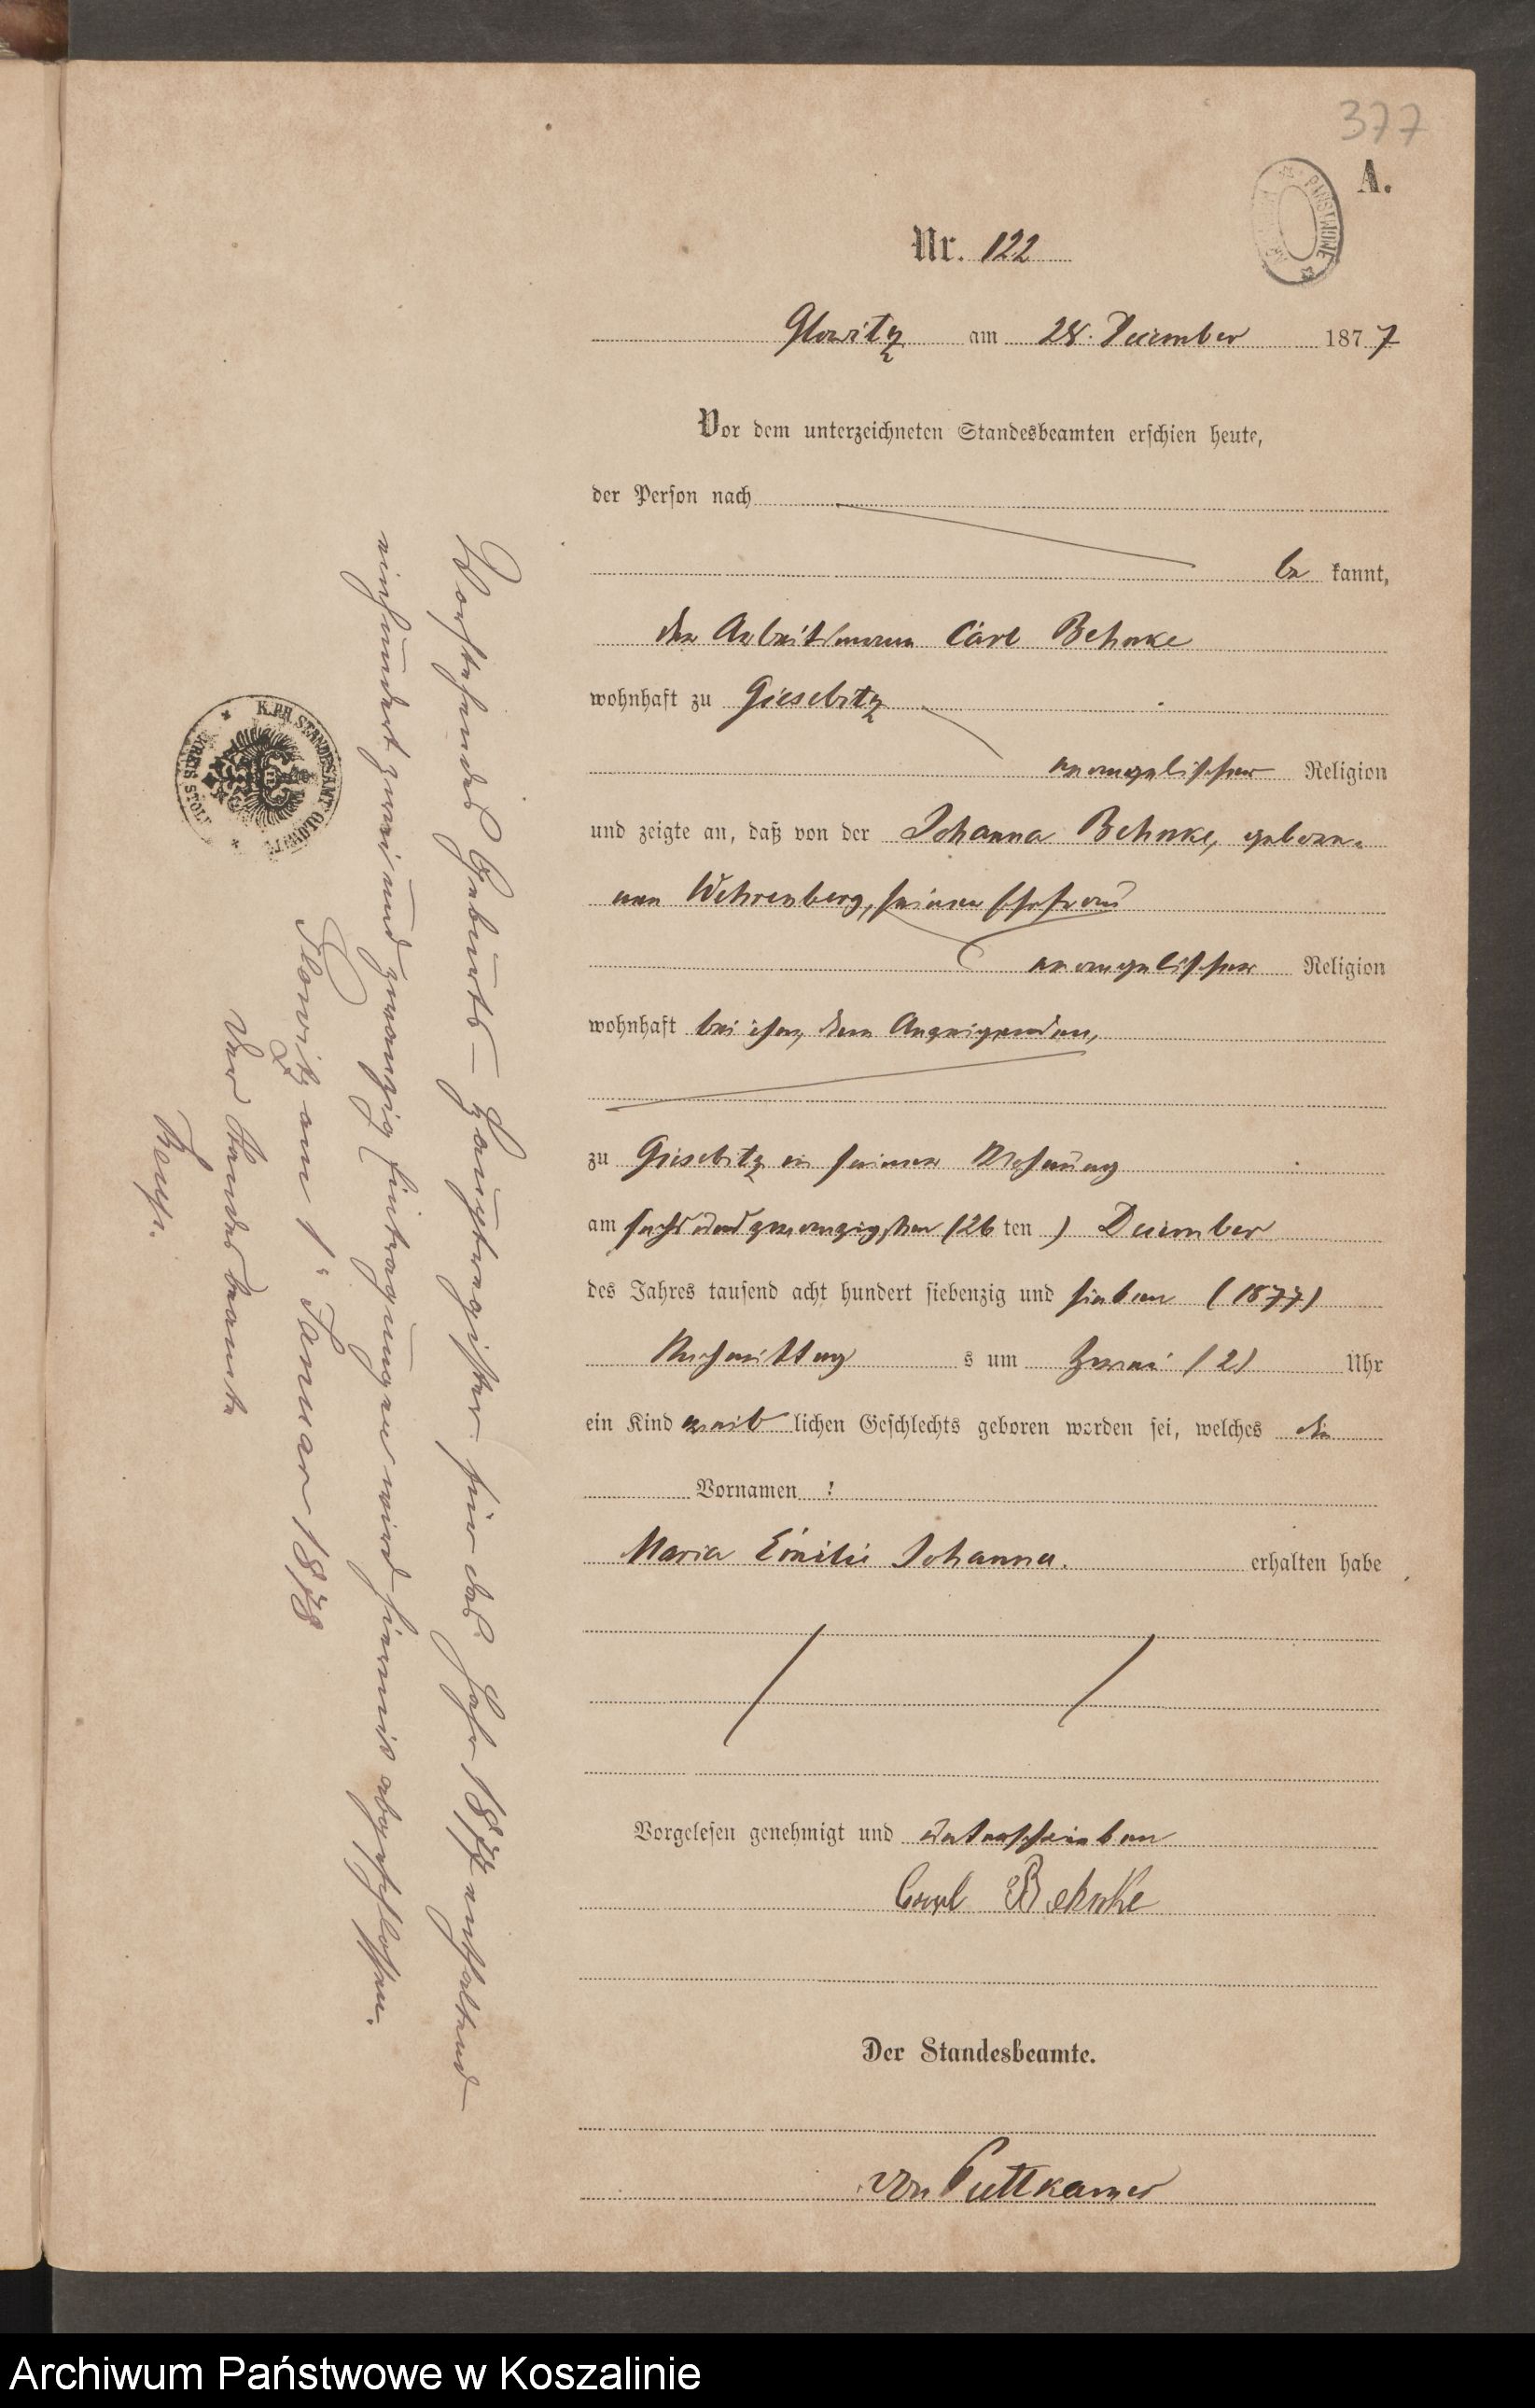 377
A.
Nr. 122
Glowitz am 28. December 1877
Vor dem unterzeichneten Standesbeamten erschien heute,
der Person nach
be kannt,
der Arbeitsmann Carl Behnke
wohnhaft zu Giesebitz
evangelischer Religion
und zeigte an, daß von der Johanna Behnke, gebore-
nen Wehrenberg, seiner Ehefrau
evangelischer Religion
wohnhaft bei ihm, dem Anzeigenden,
zu Giesebitz in seiner Wohnung
am sechsundzwanzigsten (26 ten) December
des Jahres tausend acht hundert siebenzig und sieben (1877)
Nachmittag s um zwei (2) Uhr
ein Kind weib lichen Geschlechts geboren worden sei, welches die
Vornamen :
Maria Emilie Johanna. erhalten habe
Vorgelesen genehmigt und unterschrieben
Carl Behnke
Der Standesbeamte.
von Puttkamer
Vorstehendes Geburts-Hauptregister für das Jahr 1877 enthaltend
einhundert zwei und zwanzig Eintragungen wird hiermit abgeschlossen.
Glowitz am 1. Januar 1878
Der Standesbeamte
K.PR. STANDESAMT GLOWITZ
KREIS STOLP
PAŃSTWOWE
Archiwum Państwowe w Koszalinie